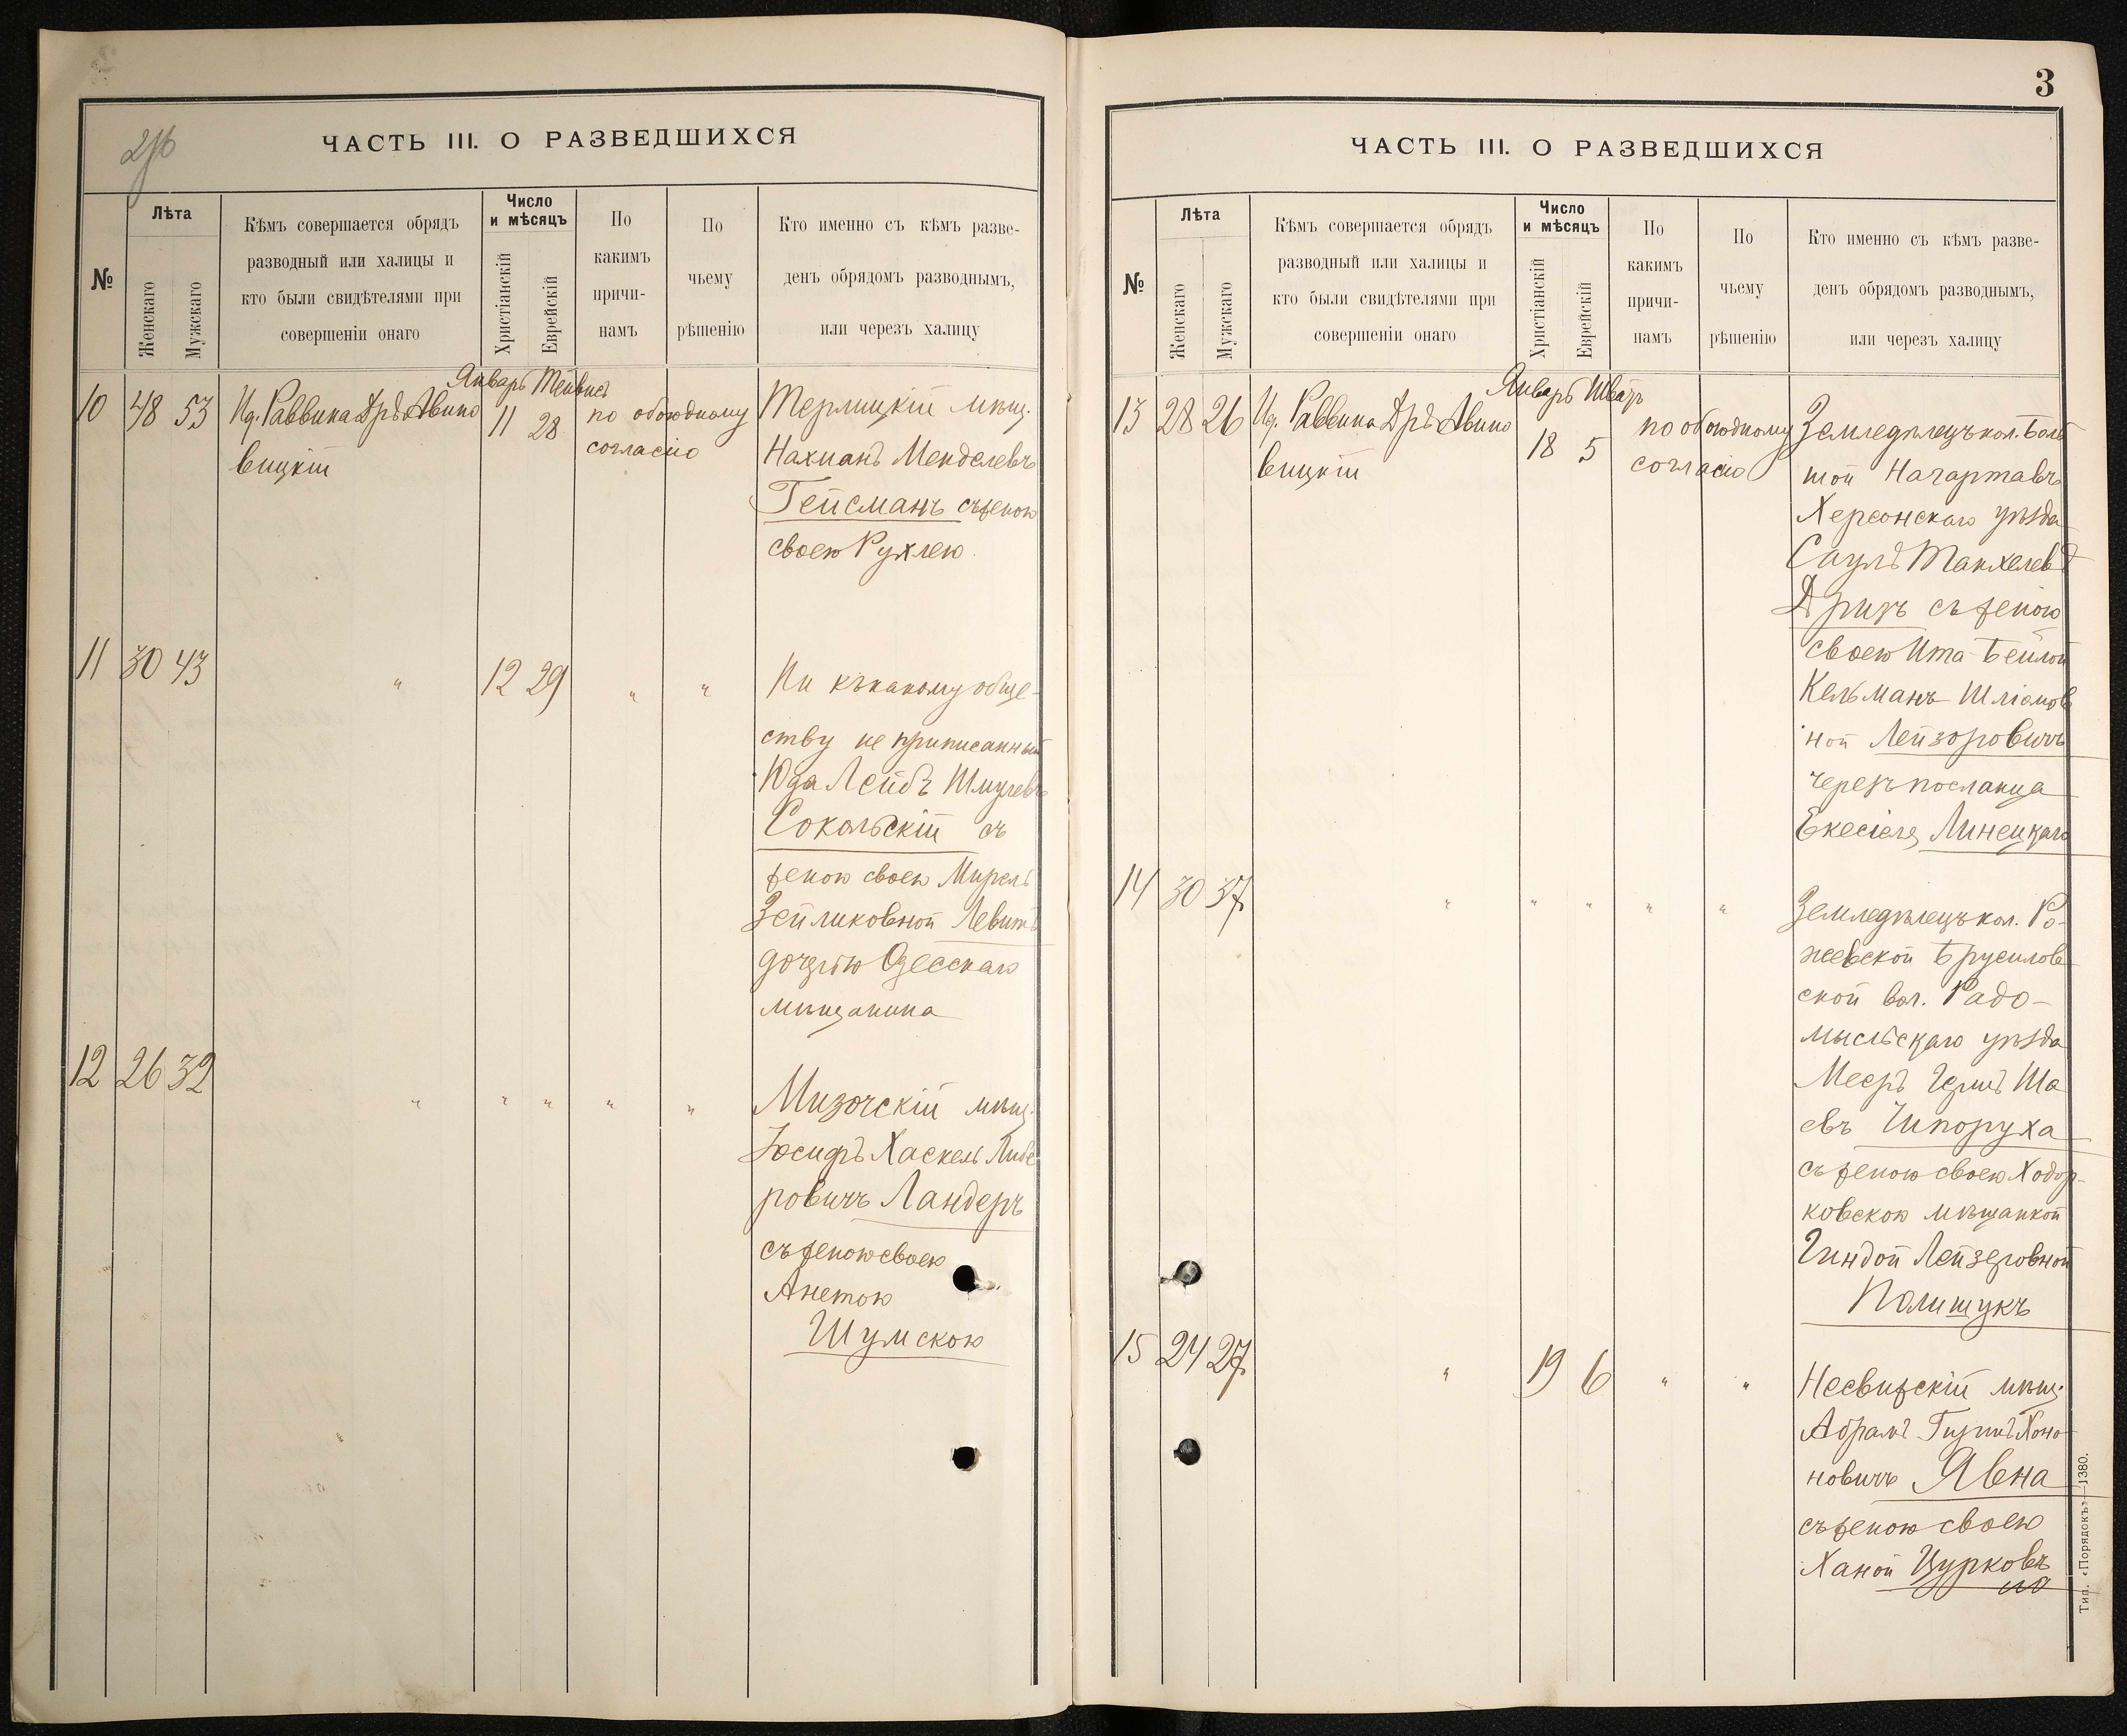 ЧАСТЬ III. О РАЗВЕДШИХСЯ
№
Лѣта
Женскаго
Мужскаго
Кѣмъ совершается обрядъ
разводный или халицы и
кто были свидѣтелями при
совершеніи онаго
Число
и мѣсяцъ
Христіанскій
Еврейскій
По
какимъ
причи-
намъ
По
чьему
рѣшенію
Кто именно съ кѣмъ разве-
денъ обрядомъ разводнымъ,
или черезъ халицу
Январь Тейвисъ
10 48 53 Ид. Раввина Дръ Авино
вицкій
11 28
по обоюдному
согласію
Терлицкій мѣщ.
Нахманъ Менделевъ
Гейсманъ съ женою
своею Рухлею
11 30 43 " 12 29 " " Ни къ какому обще-
ству не приписанный
Юда Лейбъ Шмулевъ
Сокольскій съ
женою своею Мирель
Зейликовной Левитъ
дочерью Одесскаго
мѣщанина
12 26 32 " " " " " Мизочскій мѣщ.
Іосифъ Хаскель Либе
ровичъ Ландеръ
съ женою своею
Анетою
Шумскою
3
ЧАСТЬ III. О РАЗВЕДШИХСЯ
№
Лѣта
Женскаго
Мужскаго
Кѣмъ совершается обрядъ
разводный или халицы и
кто были свидѣтелями при
совершеніи онаго
Число
и мѣсяцъ
Христіанскій
Еврейскій
По
какимъ
причи-
намъ
По
чьему
рѣшенію
Кто именно съ кѣмъ разве-
денъ обрядомъ разводнымъ,
или черезъ халицу
Январь Шватъ
13 28 26 Ид. Раввина Дръ Авино
вицкій
18 5
по обоюдному
согласію
Земледѣлецъ кол. Боль
шой Нагартавъ
Херсонскаго уѣзда
Сауль Танхелевъ
Дризъ съ женою
своею Ита-Бейлой
Кельманъ Шліомов
ной Лейзоровичъ
черезъ посланца
Екесіеля Линецкаго
14 30 37 " " " " " Земледѣлецъ кол. Ро-
жевской Брусилов
ской вол. Радо-
мысльскаго уѣзда
Мееръ Гершъ Ша
евъ Шпоруха
съ женою своею Ходор-
ковскою мѣщанкой
Гиндой Лейзеровной
Полищукъ
15 24 27 " 19 6 " " Несвижскій мѣщ.
Абрамъ Гиршъ Хоно
новичъ Явна
съ женою своею
Ханой Цурковъ
на
Тип. «Порядокъ»—1380.